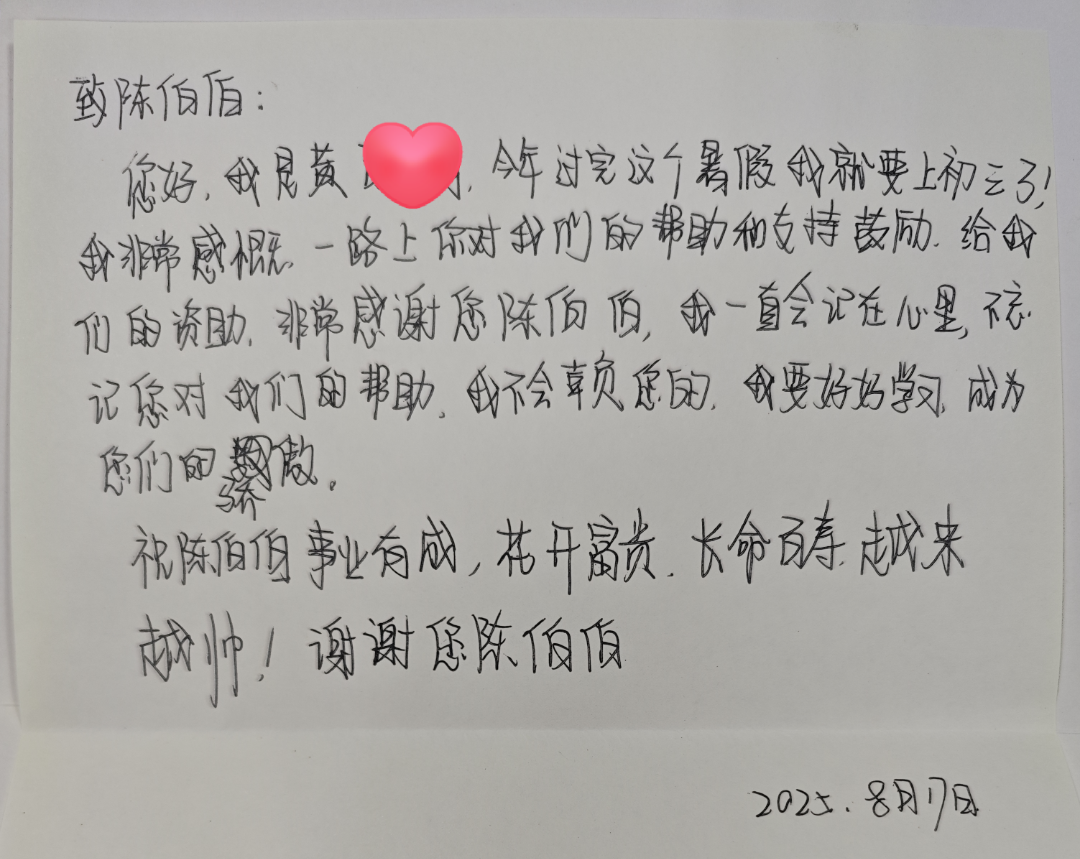 致陈伯伯:
您好,我是黄 ,今年过完这个暑假我就要上初三了!
我非常感概,一路上您对我们的帮助和支持鼓励.给我
们的资助.非常感谢您陈伯伯,我一直会记在心里,不忘
记您对我们的帮助.我不会辜负您的.我要好好学习,成为
您们的骄傲.
祝陈伯伯事业有成,花开富贵.长命百寿.越来
越帅!谢谢您陈伯伯
2025.8月17日